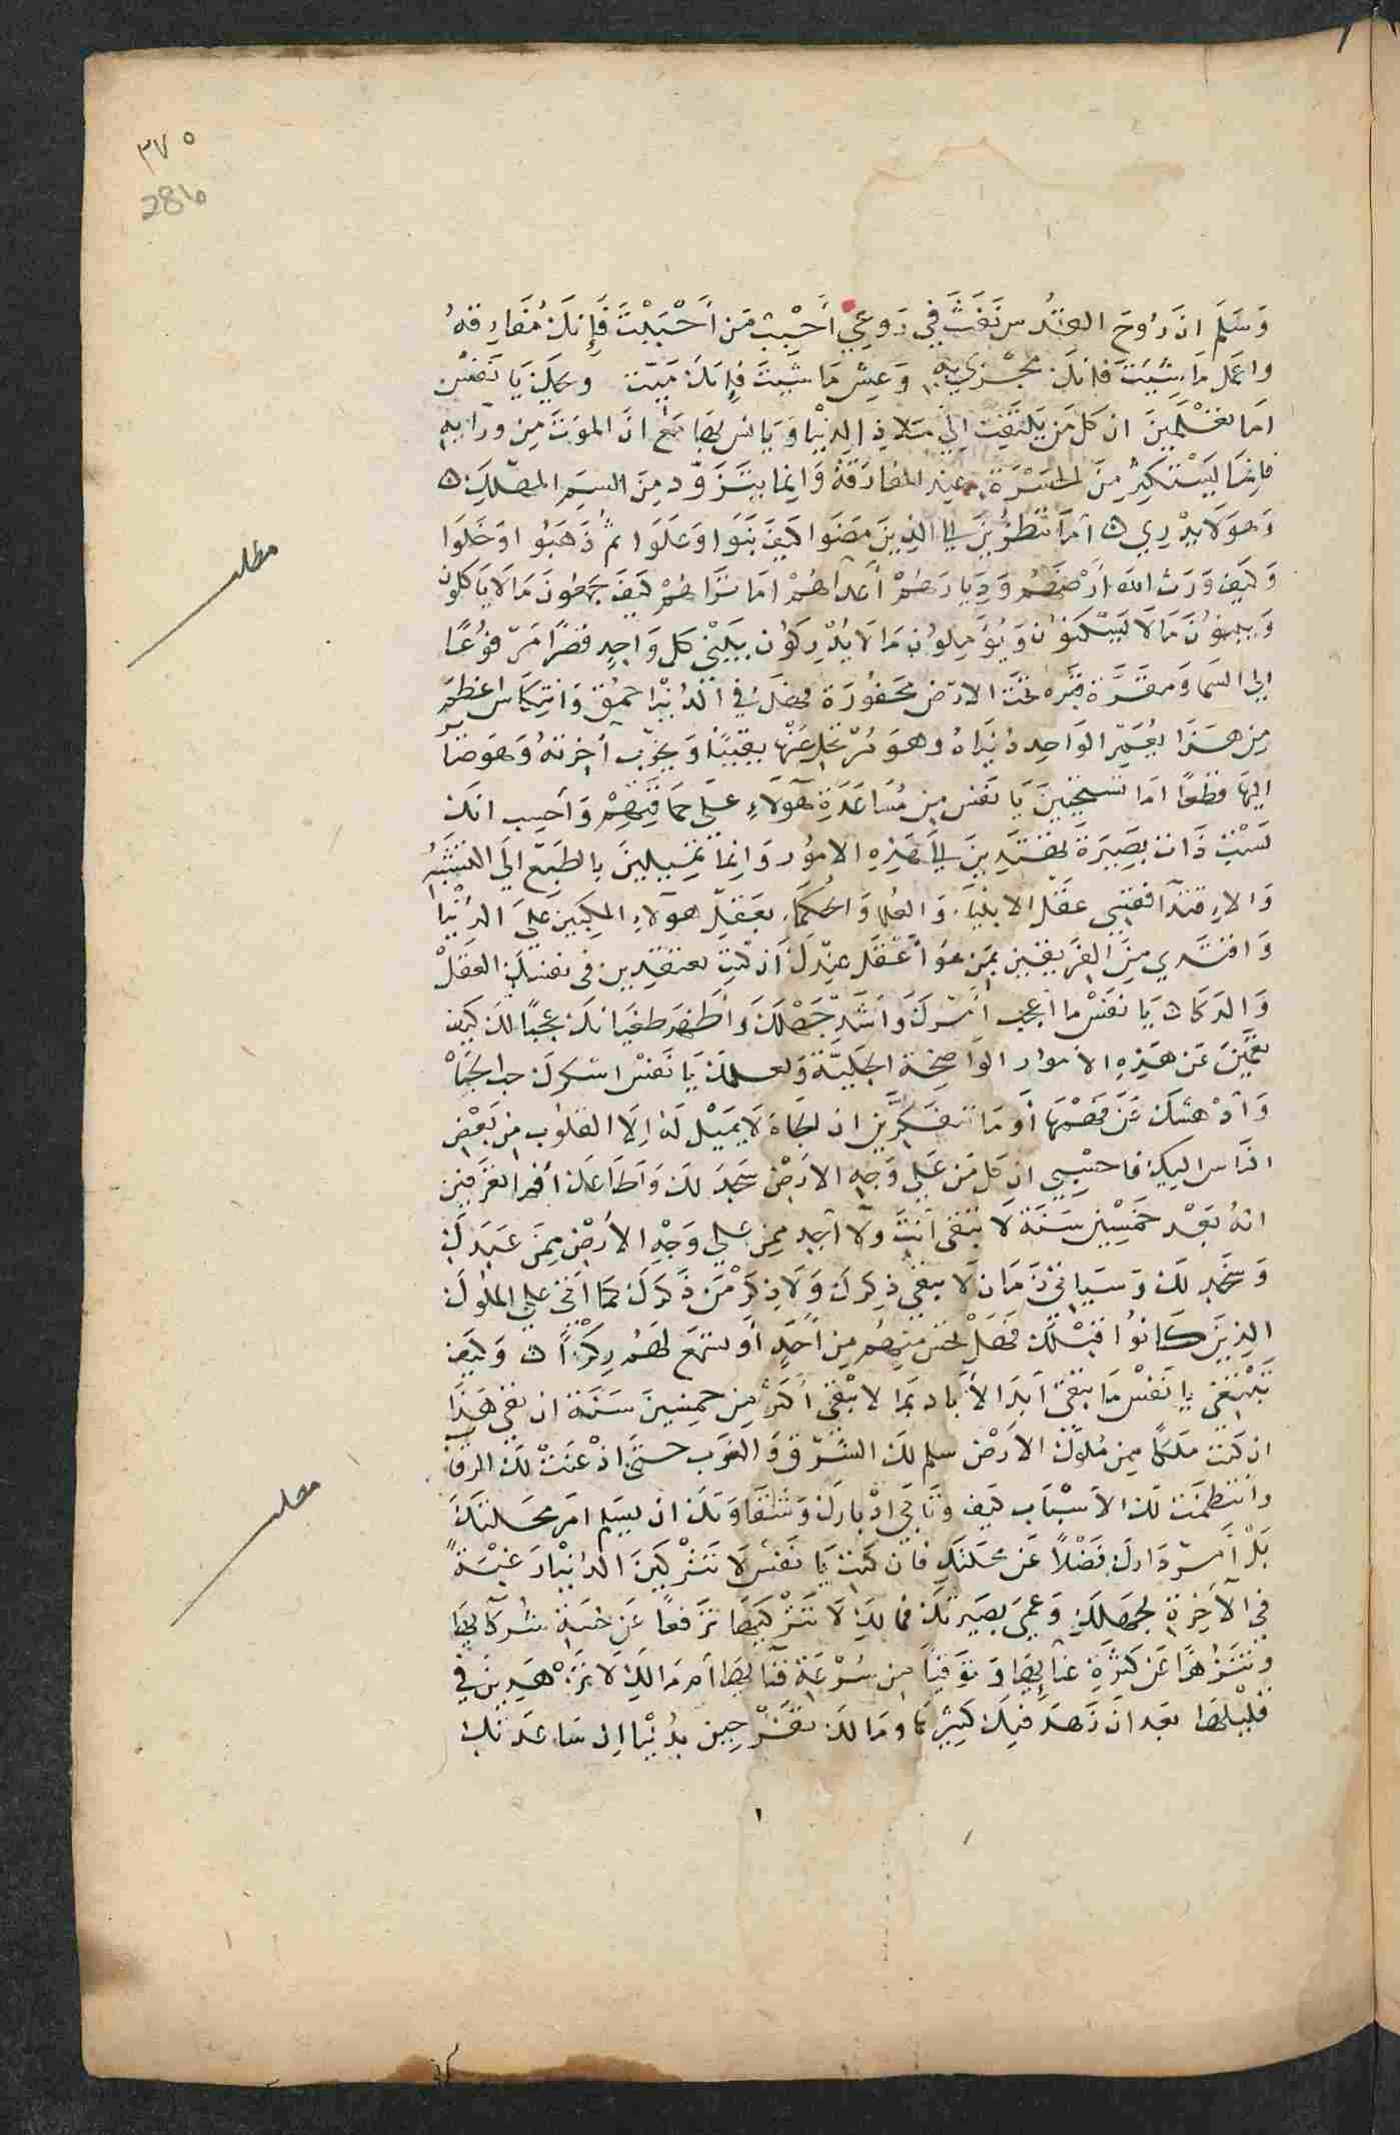 ٣٧٥
286
وَسَلَّم ان رُوحَ القدُس نَفَثَ فِي رَوعِي أَحْبِبْ مَن أَحْبَبْتَ فَإِنَكَ مُفَارِقهُ
واعمَل مَا شِئتَ فَانكَ مجْزي بِهِ وَعِش مَا شِيتَ فَإِنكَ مَيّت ويحَكِ يَا نَفسُ
امَا تعْلَمِينَ ان كل مَن يَلتَفِت الي مَلاذِ الدنْيا وَيَانس بهَا مَعَ انَ الموتَ مِن ورآيهِ
فانمَا يَسْتكثِرُ مِنَ الحسْرَة عِند المفارَقة وَانما يتَزَوّد مِنَ السَمِ المهلِكِ
وَهوَ لا يدْرِي أمَا تنظُرينَ الي الذِينَ مضَوا كيفَ بَنَوا وَعَلَوا ثُم ذَهَبُوا وَخَلَوا
وَكيفَ وَرَث الله أرْضهُم وَدِيارَهُمْ أعدآهُمْ امَا تَرَاهُمْ كيفَ يجمَعُونَ مَا لا ياكلون
وَيبنُونَ مَا لا يَسْكنونَ وَيُؤَمِلونَ مَا لا يُدْرِكونَ يَبْنِي كل وَاحِدٍ قصْرًا مَرفوُعًا
الي السَما وَمَقَرّهُ قبْره تحْتَ الارض محفُورَة فهَل في الدُنيْا حمْق وَانتكَاس اعظم
مِن هَذا يُعَمِّر الواحِد دُنيَاهُ وهوَ مُرْتَحِل عَنْها يقِينًا وَيخَرِّب آخِرتهُ وَهوَ صَاير
اليهَا قطعًا امَا تسْتحِينَ يَا نفس مِن مُسَاعَدَةِ هَؤلاءِ عَلَي حمَاقتِهِمْ وَاحسِب انكِ
لَسْتِ ذَات بَصِيرَة تهْتَدِينَ الي هَذِهِ الامُور وَانما تميِلينَ بالطَبع الَي التشَبُه
وَالاقتدَا فقِسِي عقَل الانبيَاء وَالعُلما وَالحُكمَاء بعَقلِ هَولاءِ المكِبِينَ عَلَيَ الدُنْيَا
وَاقتدي مِنَ الفَريقين بمَن هُوَ أعْقَل عِندَكَ ان كنتِ تعتقدِين في نفسِكِ العَقلْ
وَالذكاء يَا نفْسُ ما أعجب أمْرَكِ وَاشَدّ جَهْلَكِ وَاظهَر طغيَانكِ عجبًا لكِ كيف
تعْمَينَ عَن هَذِهِ الامُور الوَاضِحَة الجليّة وَلعلك يَا نَفسْ اسْكرَكِ حب الجَاه
وَأدْهشَكِ عَن فهْمِهَا أوَمَا تتفكرِينَ ان الجاه لا مَعْنَي لهُ الا ميْل القلوب مِن بَعْضِ
الناس اليكِ فاحْسِبي ان كل مَن عَلَي وَجهِ الارضِ سَجَدَ لكِ وَأطَاعَكِ أفما تعرفين
انهُ بَعْد خَمسِين سَنَة لا تبقي انتِ ولا أحَد ممن علي وَجْهِ الأرضِ ممَن عَبَدَكِ
وَسَجد لكِ وَسَيَاتي زَمَان لا يبقي ذِكركِ وَلا ذِكرْ مَن ذَكركِ كما أتي علي الملوك
الذِينَ كانُوا قبْلَكِ فهَلْ تحس مِنهُم مِن أحَدٍ أو تسْمَع لهُم رِكْزًا وَكيف
تَبيعين يا نفسْ مَا يبقي أبَدَ الآباد بمَا لا يبْقَي أكثر مِن خمسِينَ سَنَة ان بقي هَذا
ان كنت مَلكًا مِن مُلوك الارْض سلم لكَ الشرق وَالغَرب حتّي اذْعَنَتْ لكَ الرقاب
وانتَظمَت لكَ الاسْبَاب كيف وَيَأبَي ادْبارك وَشَقاوَتكَ ان يسَلم امْرَ محَلتكِ
بَلْ أمْر دَاركِ فَضْلاً عَن محَلتكِ فان كنتِ يَا نفس لا تتركِينَ الدنيْا رَغبَةً
فِي الآخِرَة لجهلِكِ وَعَمي بَصِيرَتكِ فما لكِ لا تتركيهَا ترفعًا عَن خِسّة شُركآيهَا
وتنَزُهًا عَن كثْرَة عنآيهَا وَتوقيًا مِن سُرْعَة فنَآيهَا أم مَا لكِ لا تزهَدِينَ في
قليلهَا بعد ان زهَدَ فيكِ كثيْرهَا ومَا لكِ تفْرَحِين بدُنيْا ان سَاعَدَتكِ
مطلب
مطلب